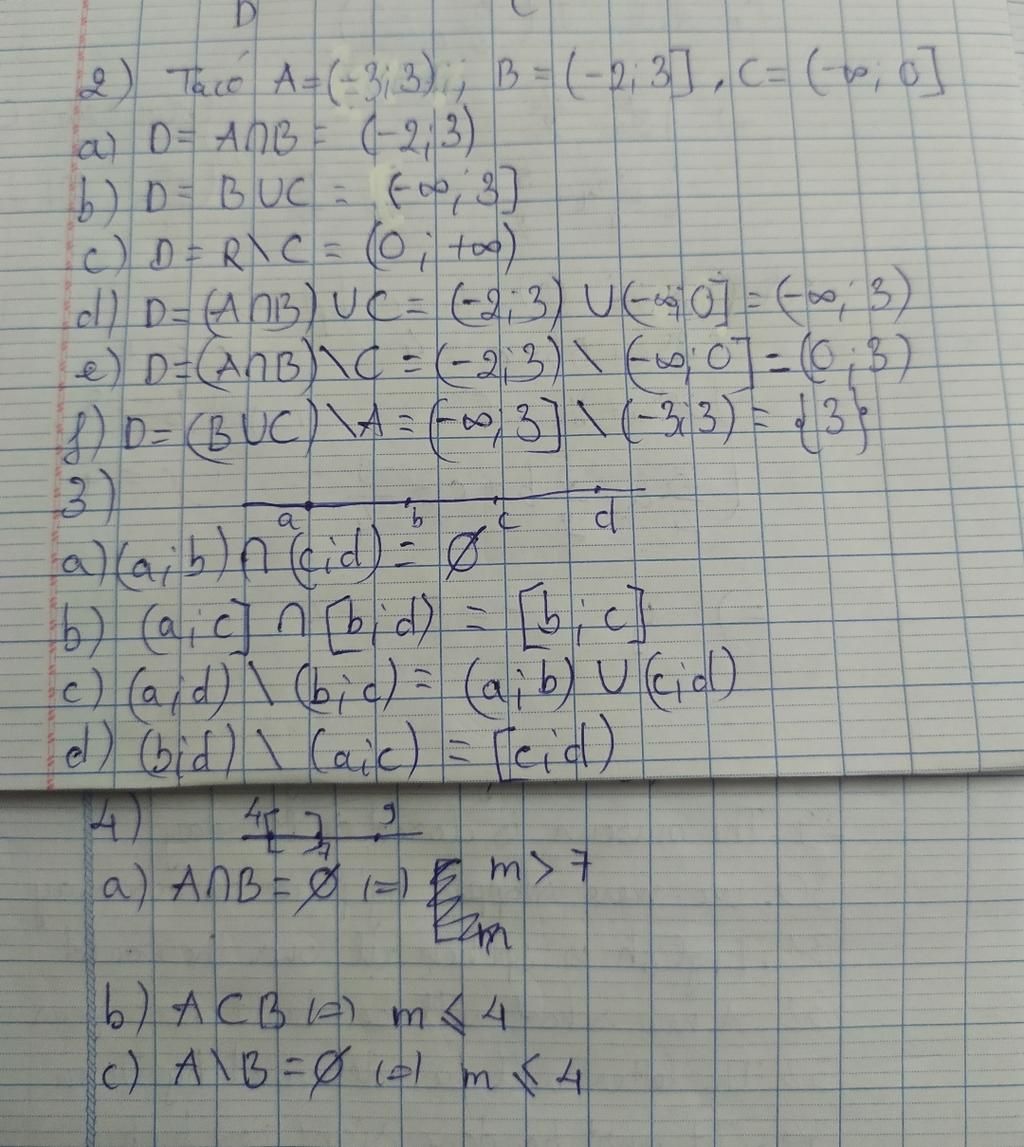 D C
2) Ta có A = (-3; 3); B = (-2; 3], C = (-∞; 0]
a) D = A∩B = (-2; 3)
b) D = B∪C = (-∞; 3]
c) D = R\C = (0; +∞)
d) D = (A∩B) ∪ C = (-2; 3) ∪ (-∞; 0] = (-∞; 3)
e) D = (A∩B) \ C = (-2; 3) \ (-∞; 0] = (0; 3)
f) D = (B∪C) \ A = (-∞; 3] \ (-3; 3) = {3}
3)
a b c d
a) (a; b) ∩ (c; d) = ∅
b) (a; c] ∩ [b; d) = [b; c]
c) (a; d) \ (b; c) = (a; b) ∪ (c; d)
d) (b; d) \ (a; c) = [c; d)
4) 4[ ]7 9
a) A∩B = ∅ (=) m > 7
m
b) A ⊂ B (=) m ≤ 4
c) A\B = ∅ (=) m ≤ 4